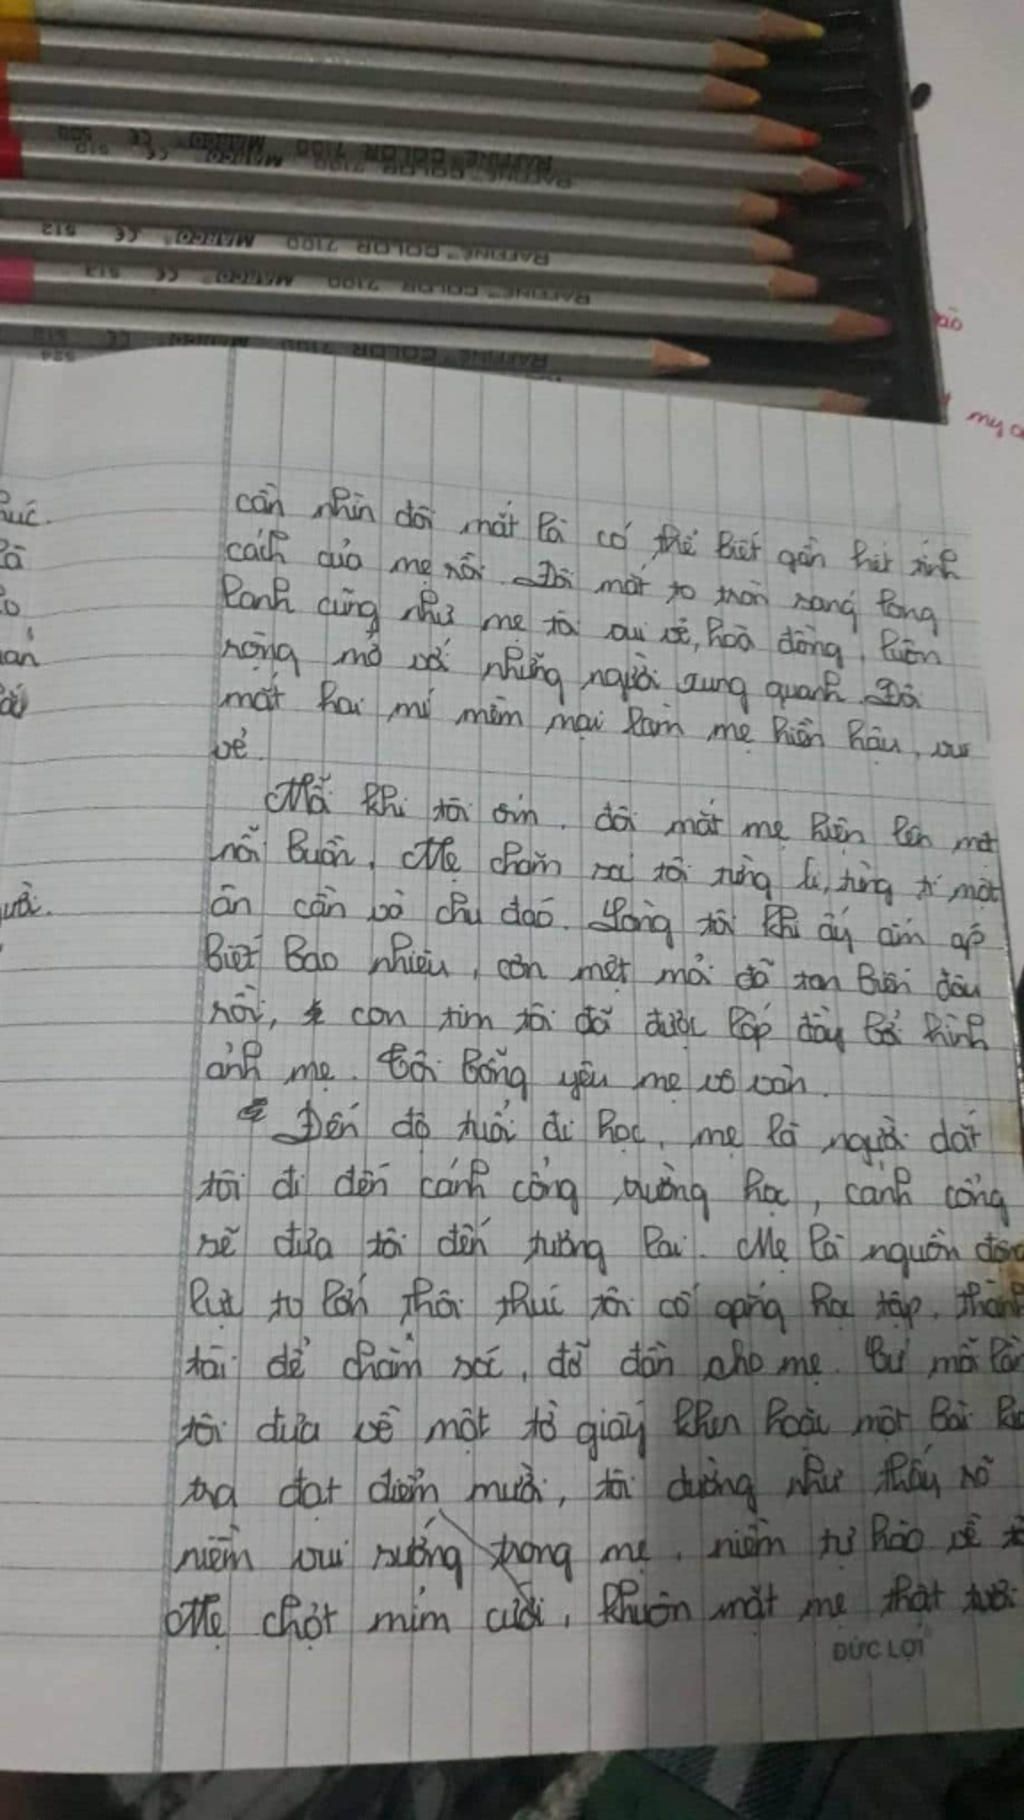 RAFFINE COLOR 7100 MARCO CE
RAFFINE COLOR 7100 MARCO CE
RAFFINE COLOR 7100 MARCO CE 512
RAFFINE COLOR 7100 MARCO CE 513
RAFFINE COLOR 7100 MARCO CE
cần nhìn đôi mắt là có thể biết gần hết tính
cách của mẹ rồi. Đôi mắt to tròn long
lanh cũng như mẹ tôi vui vẻ, hoà đồng, luôn
rộng mở với những người xung quanh. Đôi
mắt hai mí mềm mại làm mẹ hiền hậu, vui
vẻ.
Mỗi khi tôi ốm, đôi mắt mẹ hiện lên một
nỗi buồn. Mẹ chăm sóc tôi từng li, từng tí một
ân cần và chu đáo. Lòng tôi khi ấy ấm áp
biết bao nhiêu, cơn mệt mỏi đã tan biến đâu
rồi, con tim tôi đã được lấp đầy bởi hình
ảnh mẹ. Tôi bỗng yêu mẹ vô vàn.
Đến độ tuổi đi học, mẹ là người dắt
tôi đi đến cánh cổng trường học, cánh cổng
sẽ đưa tôi đến tương lai. Mẹ là nguồn động
lực to lớn thôi thúc tôi cố gắng học tập, thành
tài để chăm sóc, đỡ đần cho mẹ. Cứ mỗi lần
tôi đưa về một tờ giấy khen hoặc một bài
tra đạt điểm mười, tôi dường như thấy rõ
niềm vui sướng trong mẹ, niềm tự hào về
Mẹ chợt mỉm cười, khuôn mặt mẹ thật tươi
ĐỨC LỢI